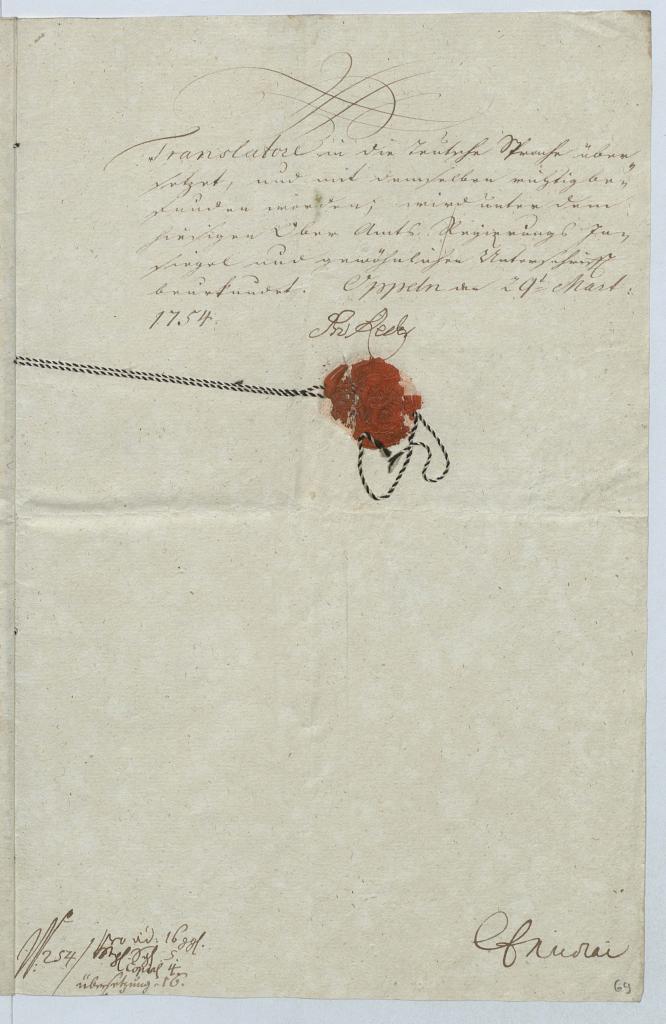 Translatore in die Teutsche Sprache über-
setzet, und mit demselben richtig be-
funden worden; wird unter dem
hiesigen Ober Amts Regierungs In-
siegel und gewöhnlicher Unterschrifft
beurkundet. Oppeln den 29t Mart:
1754.
Reder
254
16 ggl.
Sigl. 5.
Copial 4.
übersetzung. 16.
69